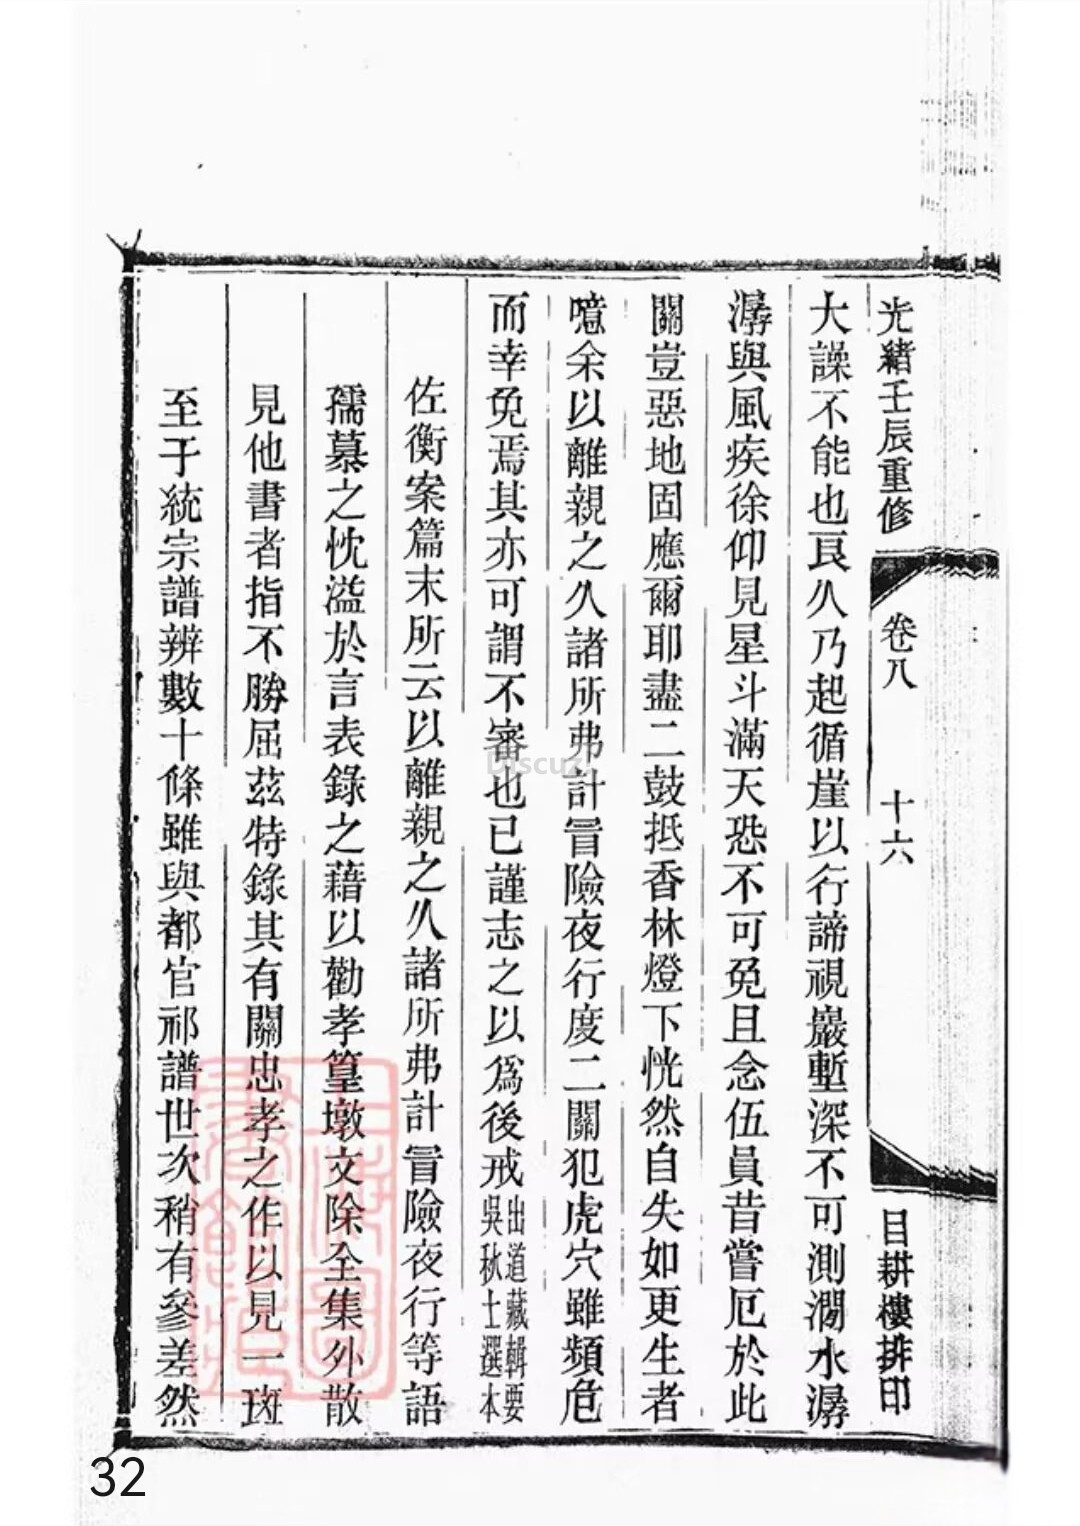 光緒壬辰重修 卷八 十六 目耕樓排印
大譟不能也良久乃起循崖以行諦視巖塹深不可測澗水潺
潺與風疾徐仰見星斗滿天恐不可免且念伍員昔嘗厄於此
關豈惡地固應爾耶盡二鼓抵香林燈下恍然自失如更生者
噫余以離親之久諸所弗計冒險夜行度二關犯虎穴雖頻危
而幸免焉其亦可謂不審也已謹志之以爲後戒出道藏輯要
吳秋士選本
佐衡案篇末所云以離親之久諸所弗計冒險夜行等語
孺慕之忱溢於言表錄之藉以勸孝篁墩文除全集外散
見他書者指不勝屈茲特錄其有關忠孝之作以見一斑
至于統宗譜辨數十條雖與都官祁譜世次稍有參差然
Discuz!
32